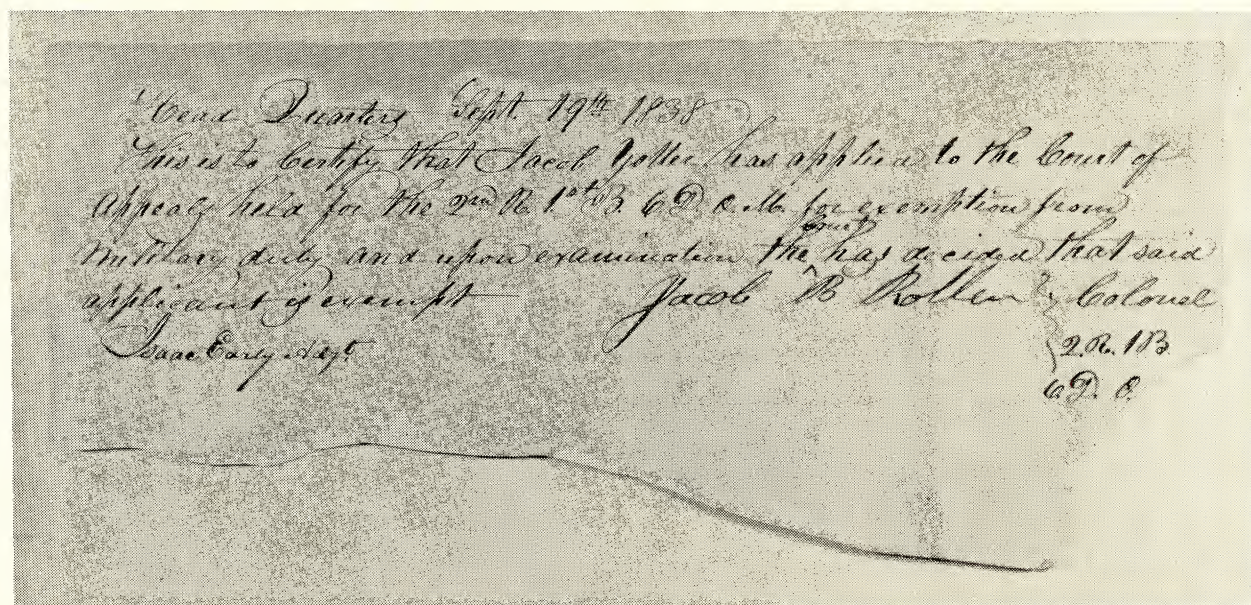 Head Quarters Sept. 19th 1838
This is to Certify that Jacob Yotter has applied to the Court of
Appeals held for the 2nd R. 1st B. 6 D. O. M. for exemption from
Military duty and upon examination the court has decided that said
applicant is exempt Jacob B Roller Colonel
Isaac Early Adgt
2. R. 1 B
6. D. O.